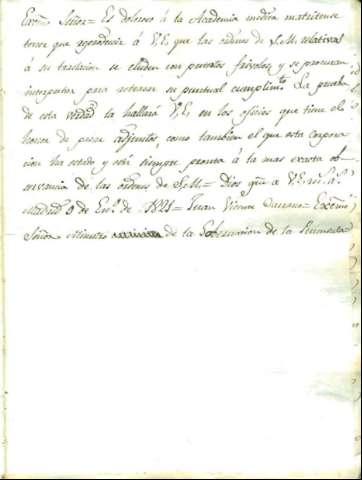 Exmõ Señor= Es doloroso á la Academia medica matritense
tener que reproducir á V.E. que las ordenes de S.M. relativas
á su traslacion se eluden con pretestos frivolos, y se procuran
interpretar para retrasar su puntual cumplimto. La prueba
de esta verdad la hallará V.E. en los oficios que tiene el
honor de pasar adjuntos, como tambien el que esta corpora-
cion ha estado y está siempre pronta á la mas exacta ob-
servancia de las ordenes de S.M.= Dios gũe á V.E. ms. as.
Madrid 9 de Eno. de 1821= Juan Vicente Carrasco= Exmõ
Señor Ministro de la Gobernacion de la Peninsula.